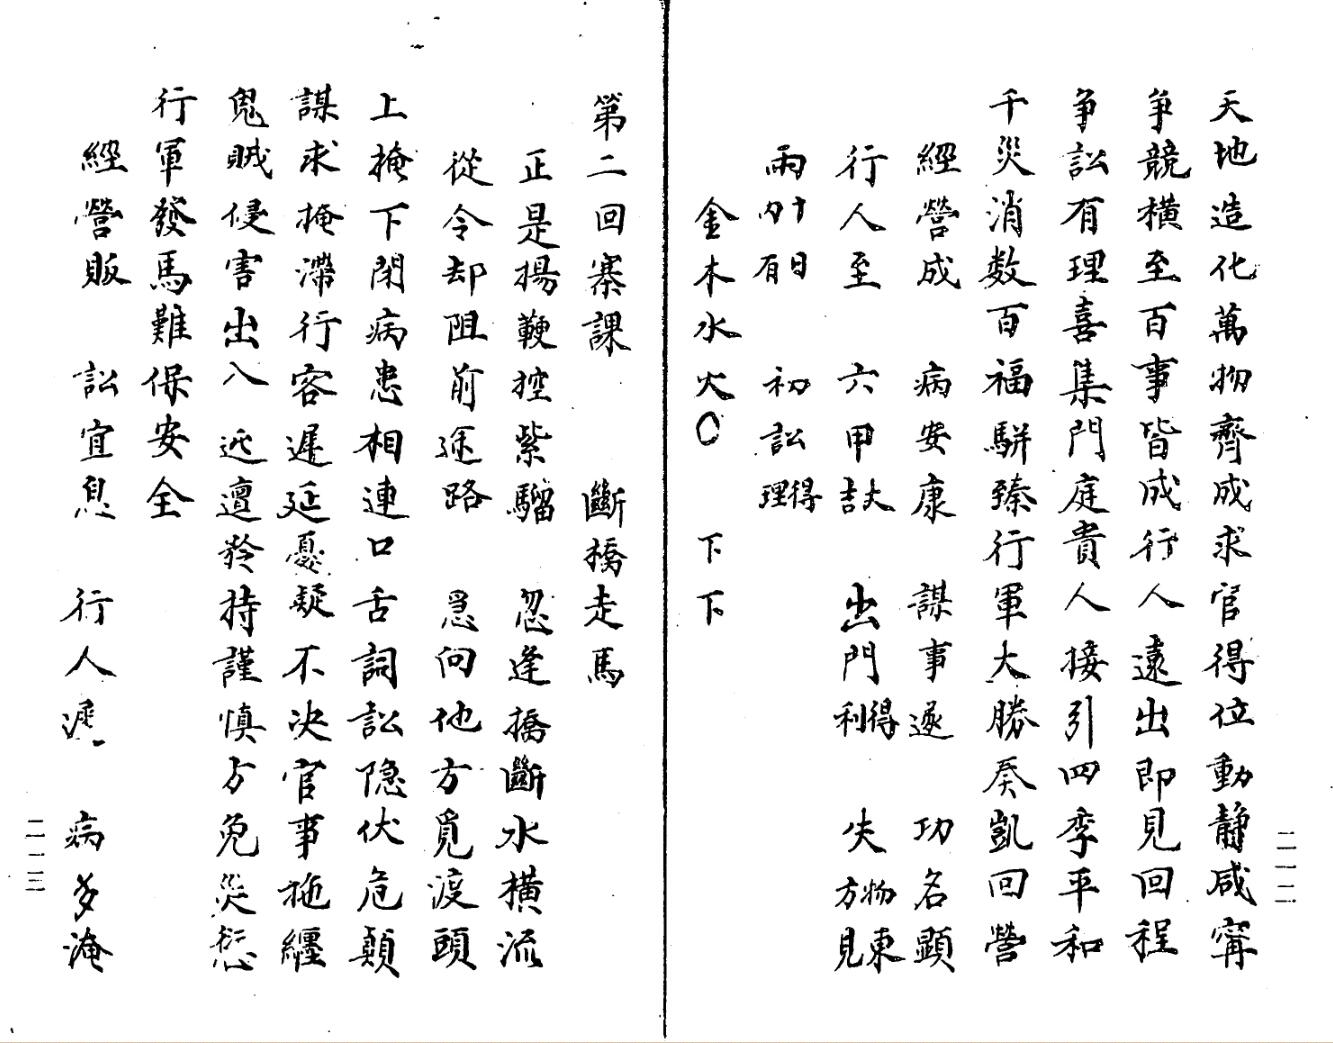 天地造化萬物齊成求官得位動靜咸寧
爭競橫至百事皆成行人遠出即見回程
爭訟有理喜集門庭貴人接引四季平和
千災消数百福駢臻行軍大勝奏凱回營
經營成 病安康 謀事遂 功名顯
行人至 六甲吉大 出門利得 失物東方見
雨十日內有 初訟得理
金木水火〇 下下
二一二
第二回寨課 斷橋走馬
正是揚鞭控紫騮 忽逢橋斷水橫流
從令却阻前途路 急向他方覓渡頭
上掩下閉病患相連口舌詞訟隐伏危顛
謀求掩滯行容遲延憂疑不决官事拖纏
鬼賊侵害出入迍邅矜持謹慎方免災愆
行軍發馬難保安全
經營販 訟宜息 行人遲 病多淹
二一三